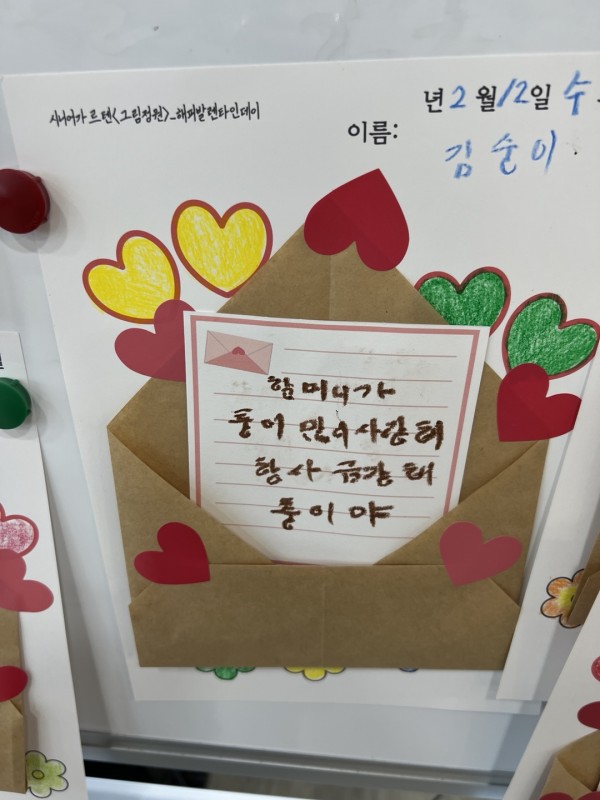 시니어가 르텐<그림정원>_해피발렌타인데이
년 2 월 12일 수
이름:
김순이
함머니가
퐁이 만이사랑해
항사 금강해
퐁이야